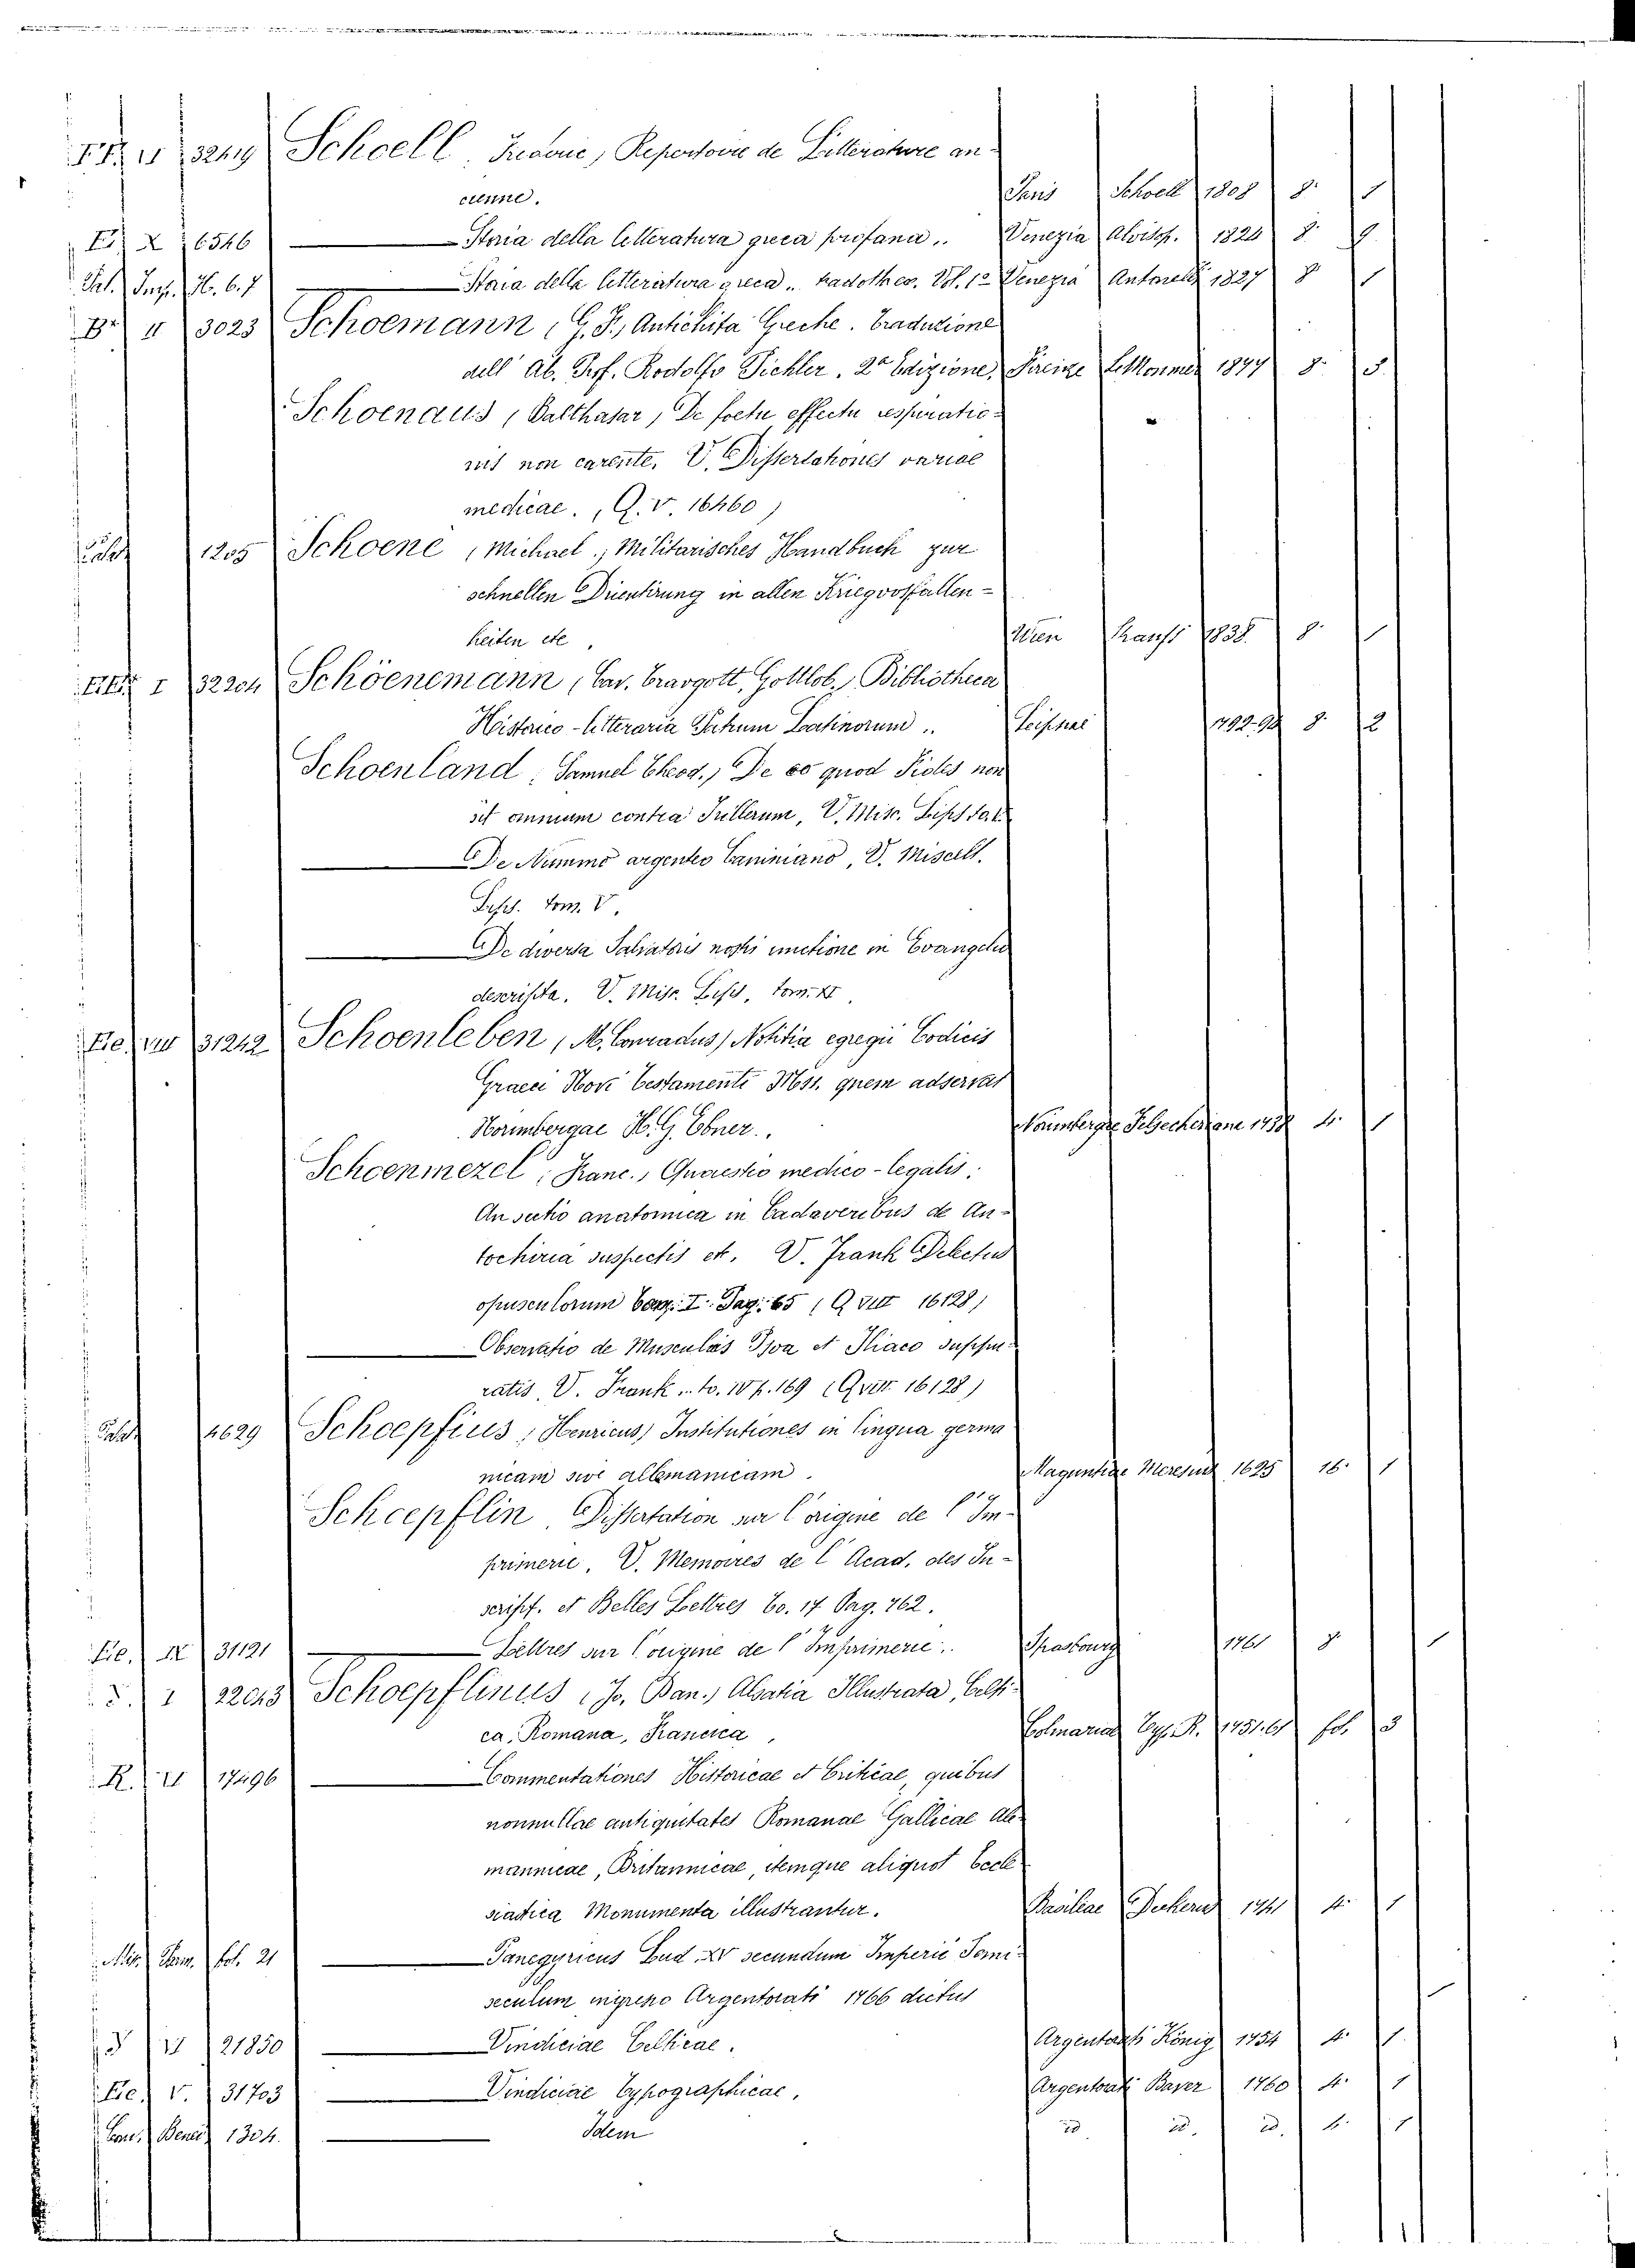 32419 Schoell Frederic, Repertoire de Litterature an-
cienne. Paris Schoell 1808 8. 1
X 6546 Storia della letteratura greca profana.. Venezia Alvisop. 1824 8. 9
H. 6.7 Storia della letteratura greca.. Vol. 1° Venezia Antonelli 1827 8 1
B II 3023 Schoemann, G. F., Antichita Greche. Traduzione
dell' Ab. Prof. Rodolfo Pichler. 2a Edizione, Firenze LeMonnier 1877 8. 3.
Schoenaus, Balthasar, De foetu effectu respiratio-
nis non carente, V. Dissertationes variae
medicae. (Q. V. 16460)
1205 Schoene, Michael, Militarisches Handbuch zur
schnellen Orientirung in allen Kriegvorfallen-
heiten etc Wien 1838 8. 1
I 32204 Schöenemann, Car. Traugott, Gottlob, Bibliotheca
Historico-litteraria Patrum Latinorum.. Lipsiae 1792.94 8. 2
Schoenland, Samuel Theod., De eo quod Fides non
sit omnium contra Tullerum, V. Misc. Lips
De Nummo argenteo Caniniano, V. Miscell.
Lips. tom. V.
De diversa Salvatoris nostri unctione in Evangelio
descripta. V. Misc. Lips, tom.
31242 Schoenleben, M. Conradus, Notitia egregii Codicis
Graeci Novi Testamenti Mss. quem adservat
Norimbergae H. G. Ebner.. Norimbergae 1738 4. 1
Schoenmezel, Franc., Quaestio medico-legalis:
An sectio anatomica in Cadaveribus de Au-
tochiria suspectis et. V. Frank Delectus
opusculorum I. Pag. 65 (Q VIII 16128)
Observatio de Musculis Psoa et Iliaco suppu-
ratis, V. Frank.. to. IV p. 169 (Q VIII 16128)
4629 Schoepfius, Henricus, Institutiones in lingua germa
nicam sive allemanicam. Maguntiae 1625 16. 1
Schoepflin, Dissertation sur l'origine de l'Im-
primerie, V. Memoires de l'Acad. des In-
script. et Belles Lettres to. 17 Pag. 762.
IX 31121 Lettres sur l'origine de l'Imprimerie.. Strasbourg 1761 8. 1
I Schoepflinus, Jo. Dan., Alsatia Illustrata, Celti-
ca, Romana, Francica, Colmariae Typ. R. 1751.61 fol. 3
R. VI 17496 Commentationes Historicae et Criticae, quibus
nonnullae antiquitates Romanae Gallicae Ale-
mannicae, Britannicae, itemque aliquot Eccle
siastica Monumenta illustrantur. Basileae Deckerus 1741 4. 1
fol. 21 Panegyricus Lud. XV secundum Imperii Semi-
seculum ingresso Argentorati 1766 dictus
21850 Vindiciae Celticae. Argentorati König 1754 4. 1
V. 31703 Vindiciae Typographicae, Argentorati Baver 1760 4. 1
1304. Idem id. id. id. 4. 1